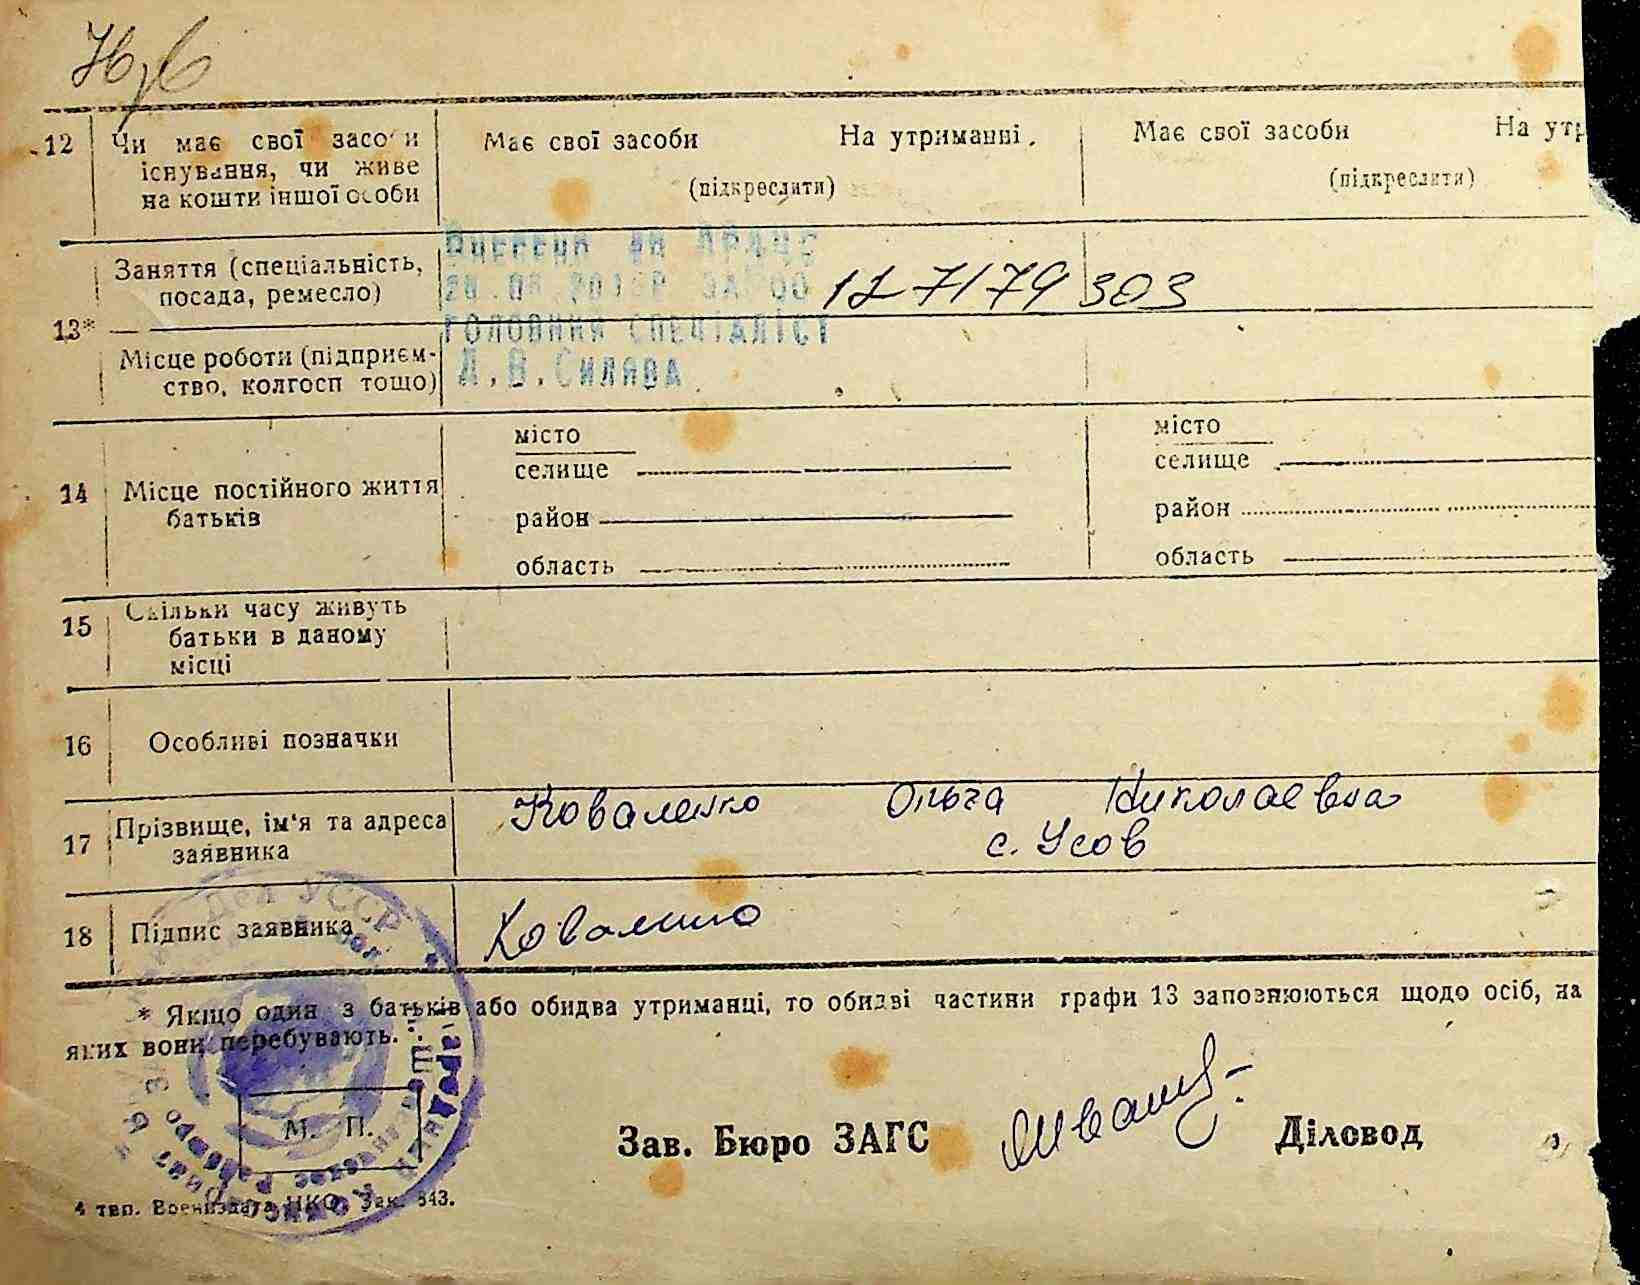 12 Чи має свої засоби Має свої засоби На утриманні Має свої засоби На утр
існування, чи живе (підкреслити) (підкреслити)
на кошти іншої особи
Заняття (спеціальність,
посада, ремесло) 127179303
13*
головний спеціаліст
Місце роботи (підприєм-
ство, колгосп тощо)
Л.В.Силява
місто місто
селище селище
14 Місце постійного життя
батьків
район район
область область
15 Скільки часу живуть
батьки в даному
місці
16 Особливі позначки
Коваленко Ольга Николаевна
17 Прізвище, ім'я та адреса
заявника
с. Усов
18 Підпис заявника Коваленко
* Якщо один з батьків або обидва утриманці, то обидві частини графи 13 заповнюються щодо осіб, на
яких вони перебувають.
М. П.
Зав. Бюро ЗАГС Діловод
4 тип. Воениздата НКО. Зак. 343.
УССР